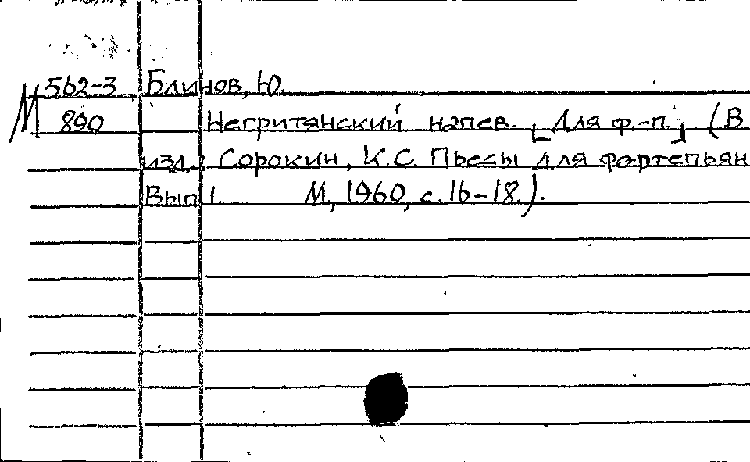 М 562-3 Блинов, Ю.
890 Негритянский напев. [Для ф.-п.] (В
изд.: Сорокин, К.С. Пьесы для фортепьян
Вып 1. М., 1960, с. 16-18.).